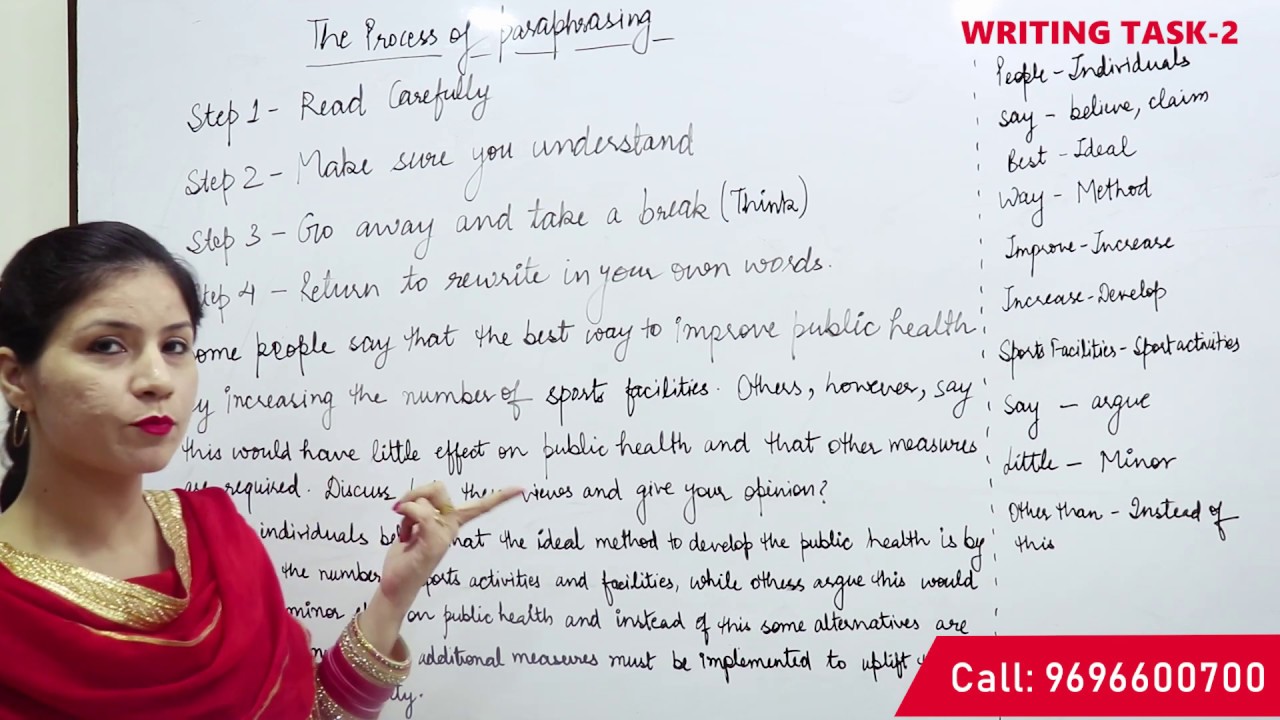 The Process of paraphrasing
Step 1 - Read Carefully
Step 2 - Make sure you understand
Step 3 - Go away and take a break (Think)
tep 4 - Return to rewrite in your own words.
ome people say that the best way to improve public health
y increasing the number of sports facilities. Others, however, say
this would have little effect on public health and that other measures
are required. Discuss views and give your opinion?
individuals that the ideal method to develop the public health is by
the number activities and facilities, while others argue this would
minor on public health and instead of this some alternatives are
additional measures must be implemented to uplift
WRITING TASK-2
People - Individuals
Say - believe, claim
Best - Ideal
Way - Method
Improve - Increase
Increase - Develop
Sports Facilities - Sport activities
Say - argue
Little - Minor
Other than - Instead of
this
Call: 9696600700